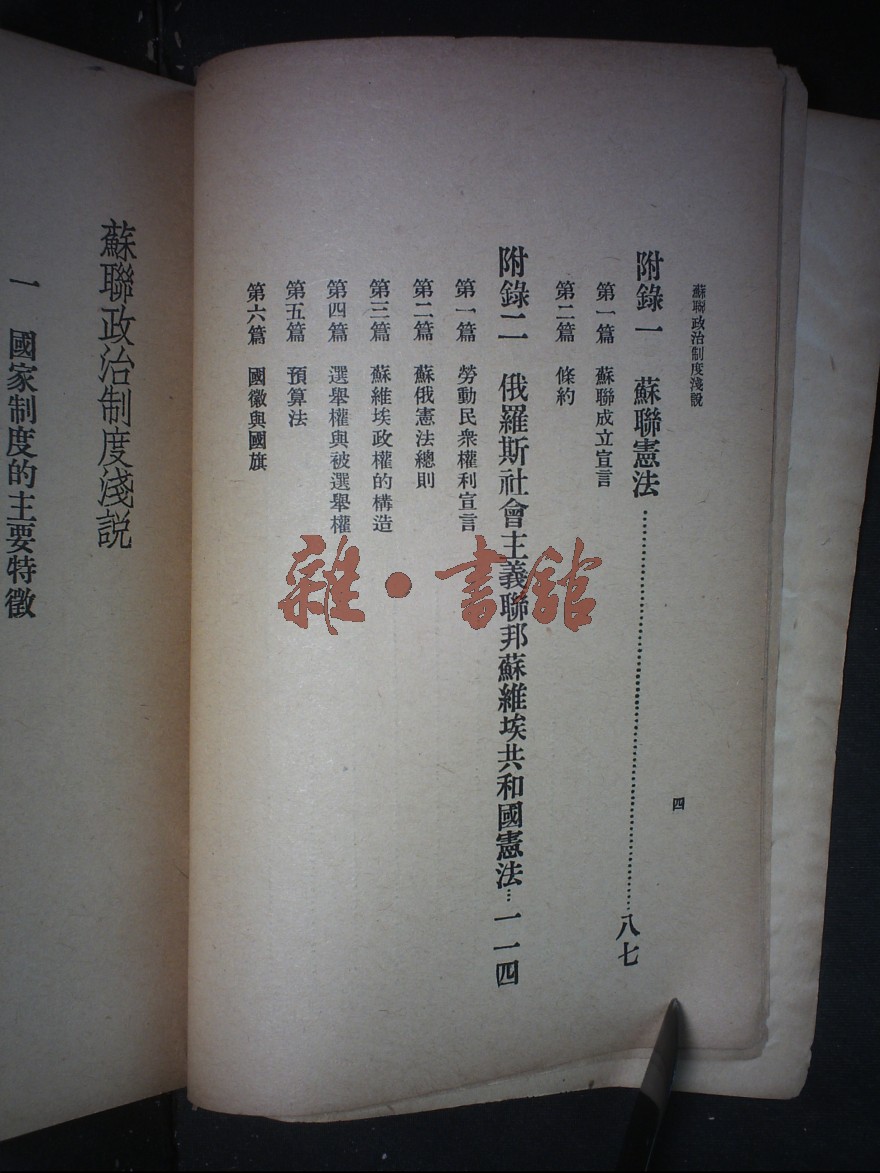 蘇聯政治制度淺說
四
附錄一 蘇聯憲法……八七
第一篇 蘇聯成立宣言
第二篇 條約
附錄二 俄羅斯社會主義聯邦蘇維埃共和國憲法…一一四
第一篇 勞動民衆權利宣言
第二篇 蘇俄憲法總則
第三篇 蘇維埃政權的構造
第四篇 選舉權與被選舉權
第五篇 預算法
第六篇 國徽與國旗
雜·書館
蘇聯政治制度淺説
一 國家制度的主要特徵